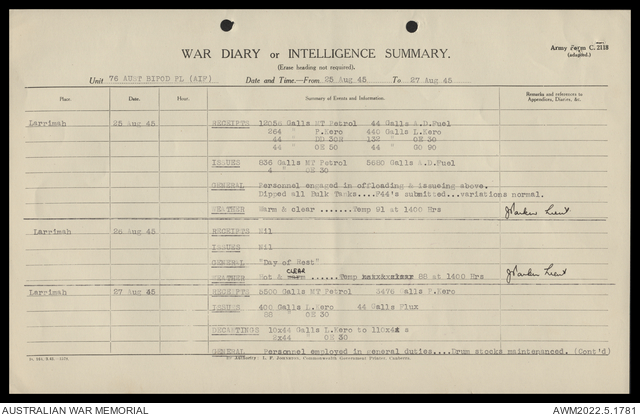 Army Form C. 2118
(adapted.)
WAR DIARY or INTELLIGENCE SUMMARY.
(Erase heading not required).
Unit 76 AUST BIPOD PL (AIF) Date and Time.—From 25 Aug 45 To 27 Aug 45
Place. Date. Hour. Summary of Events and Information. Remarks and references to Appendices, Diaries, &c.
Larrimah 25 Aug 45 RECEIPTS 12058 Galls MT Petrol 44 Galls A.D.Fuel
264 " P.Kero 440 Galls L.Kero
44 " DD 30H 132 " OE 30
44 " OE 50 44 " GO 90
ISSUES 836 Galls MT Petrol 5680 Galls A.D.Fuel
4 " OE 30
GENERAL Personnel engaged in offloading & issueing above.
Dipped all Bulk Tanks....P44's submitted...variations normal.
WEATHER Warm & clear .......Temp 91 at 1400 Hrs JParker Lieut
Larrimah 26 Aug 45 RECEIPTS Nil
ISSUES Nil
GENERAL "Day of Rest"
CLEAR
WEATHER Hot & ......Temp 88 at 1400 Hrs JParker Lieut
Larrimah 27 Aug 45 RECEIPTS 5500 Galls MT Petrol 3476 alls P.Kero
ISSUES 400 Galls L.Kero 44 Galls Flux
88 " OE 30
DECANTINGS 10x44 Galls L.Kero to 110x4 s
2x44 " OE 30
GENERAL Personnel employed in general duties....Drum stocks maintenanced. (Cont'd)
By Authority: L. F. Johnston, Commonwealth Government Printer, Canberra.
AUSTRALIAN WAR MEMORIAL AWM2022.5.1781